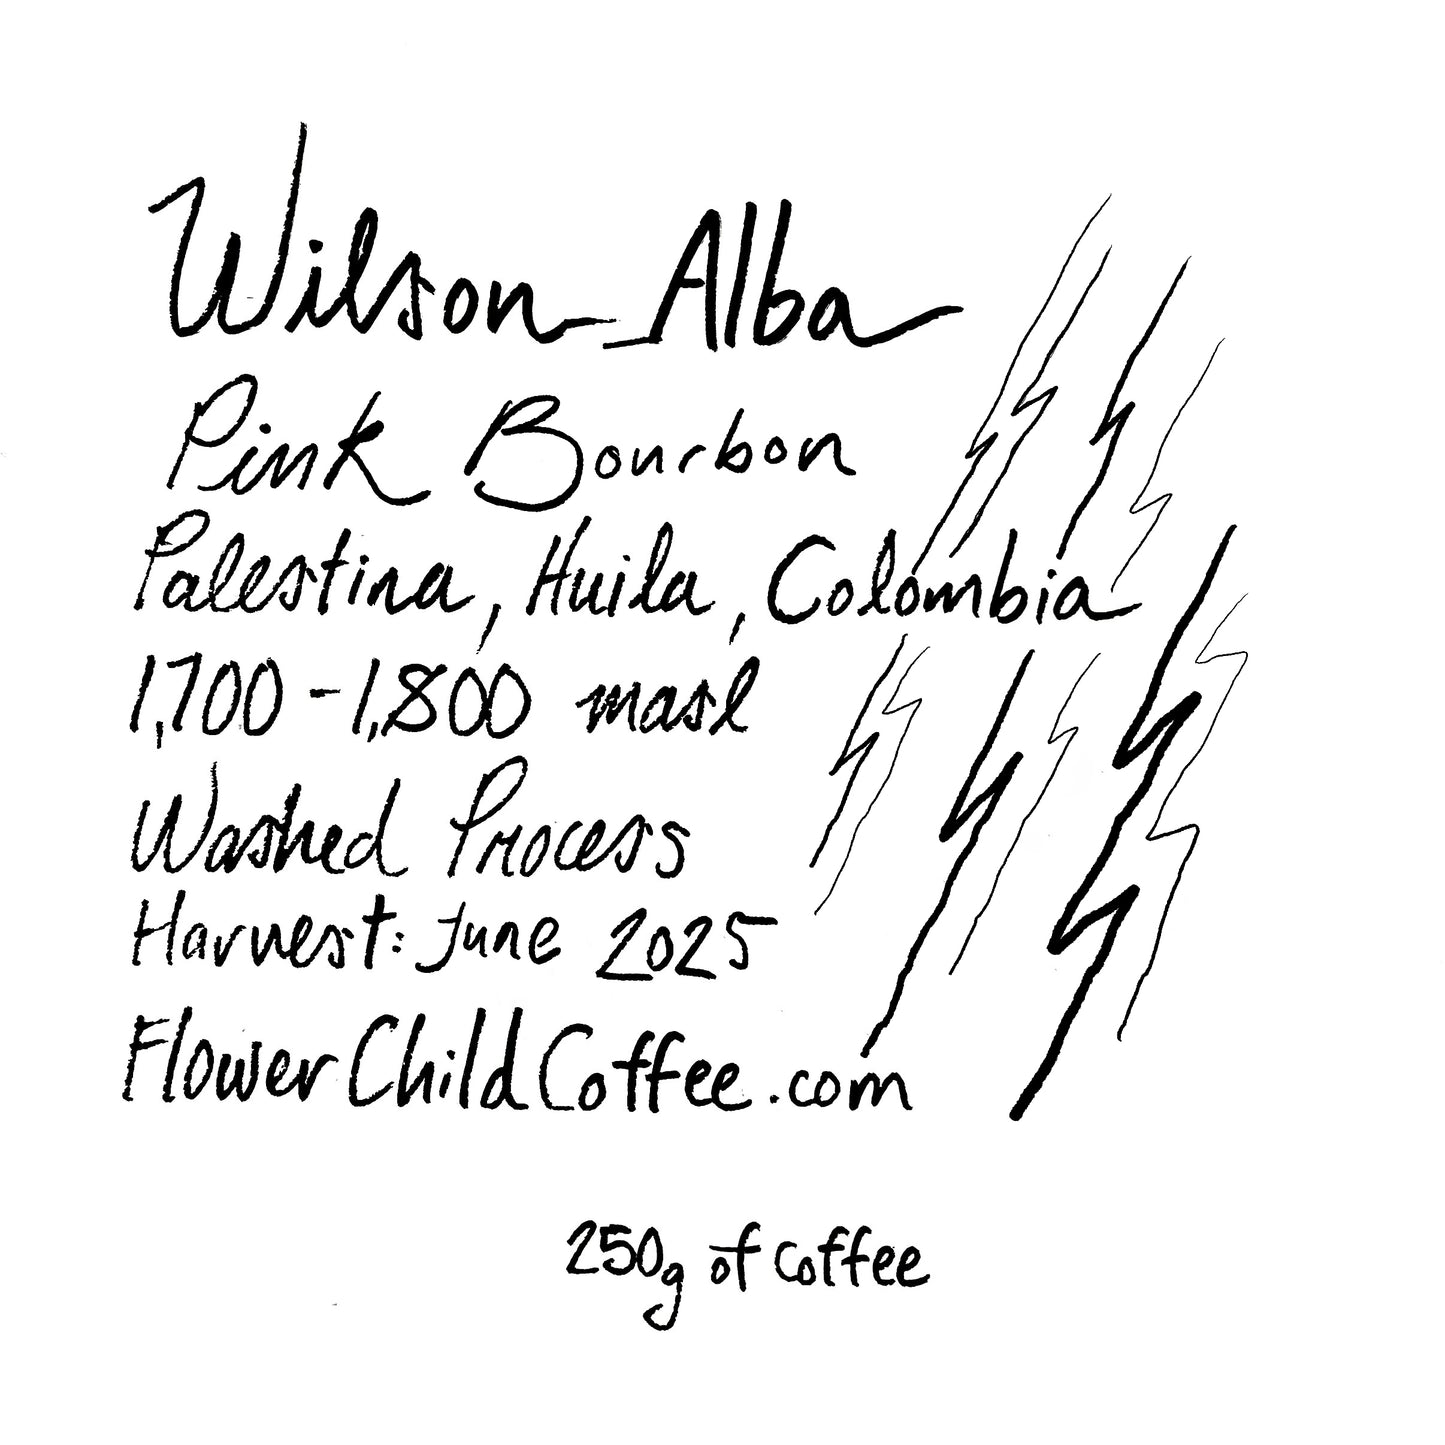 Wilson Alba
Pink Bourbon
Palestina, Huila, Colombia
1,700-1,800 masl
Washed Process
Harvest: June 2025
FlowerChildCoffee.com
250g of coffee